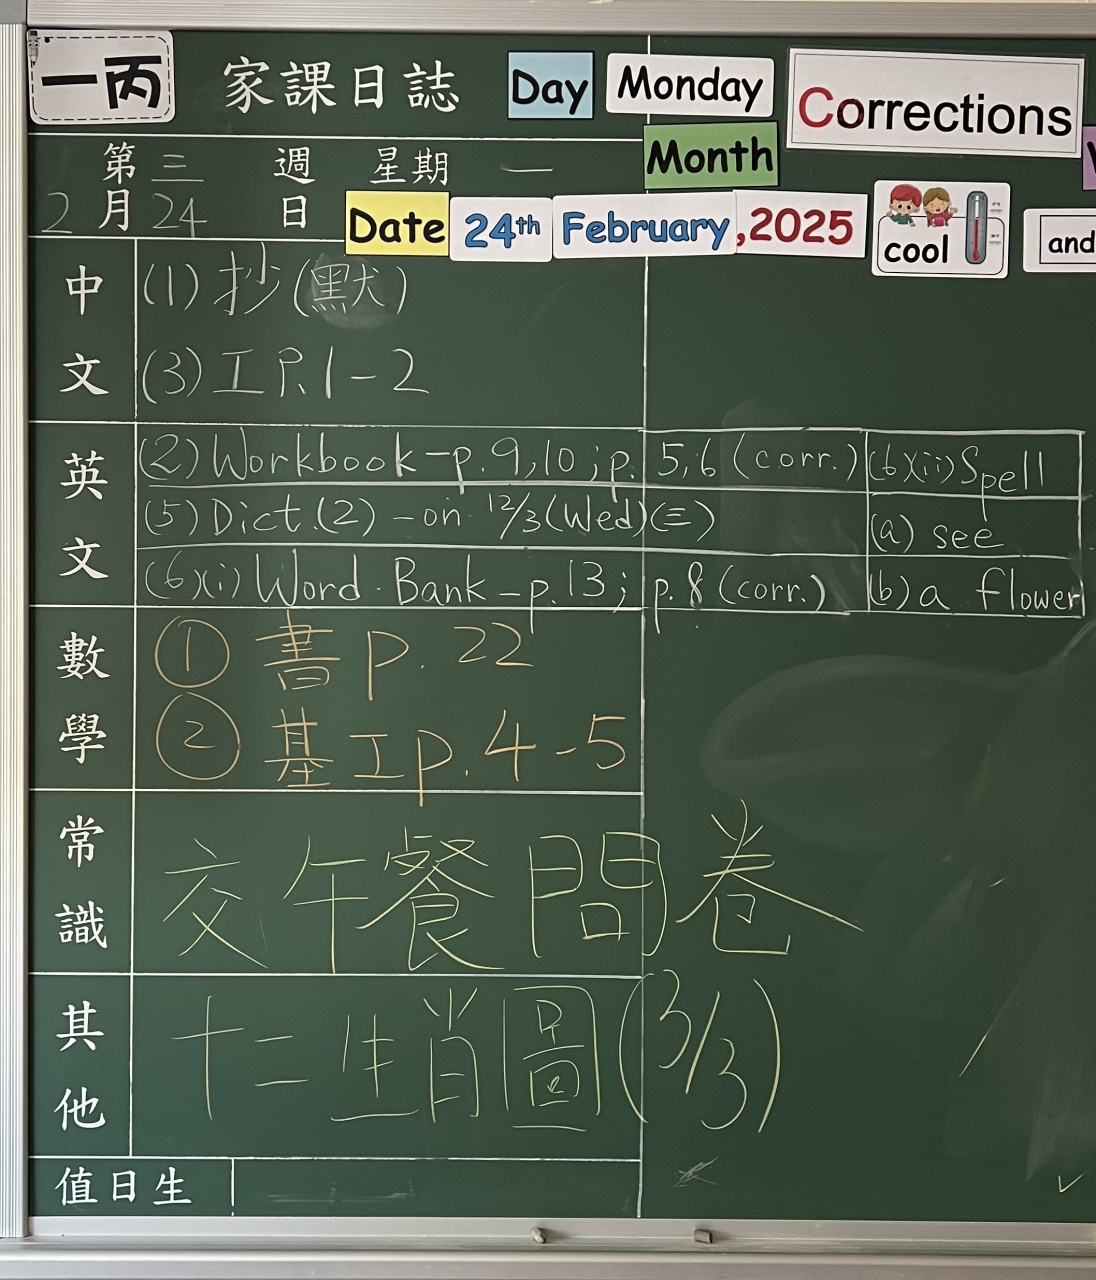 一丙 家課日誌 Day Monday Corrections
第三週 星期一 Month
2月24日 Date 24th February,2025 cool and
中文
(1)抄(默)
(3)工P.1-2
英文
(2)Workbook-p.9,10;p.5,6(corr.) (6)(ii)Spell
(5)Dict.(2)-on 12/3(Wed)(三) (a) see
(6)(i)Word Bank-p.13; p.8(corr.) (b)a flower
數學
① 書p.22
② 基工p.4-5
常識
交午餐問卷
其他
十二生肖圖(3/3)
值日生